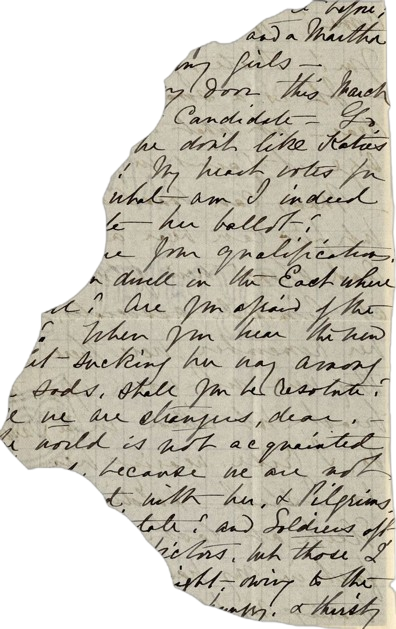 before,
and a Martha
my girls —
my door this March
Candidate — Go
he don't like Katies
? My heart votes for
what am I indeed
her ballot?
your qualifications,
dwell in the East where
? Are you afraid of the
? When you hear the new
sucking her way among
sods, shall you be resolute?
we are strangers, dear, —
world is not acquainted
, because we are not
with her, & Pilgrims,
? and Soldiers oft
victors, but those I
owing to the
hungry, & thirsty